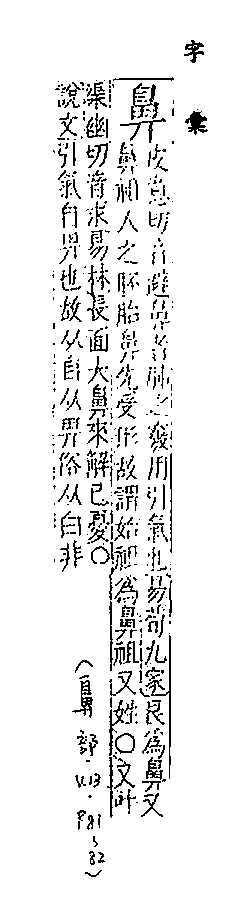 字彙
鼻
皮意切音避鼻者肺之發用引氣也易荀九家艮為鼻又
鼻祖人之胚胎鼻先受形故謂始祖為鼻祖又姓○又叶
渠幽切音求易林長面大鼻來解己憂○
說文引氣自畀也故从自从畀俗从白非
(鼻部.V.13.P.81~82)